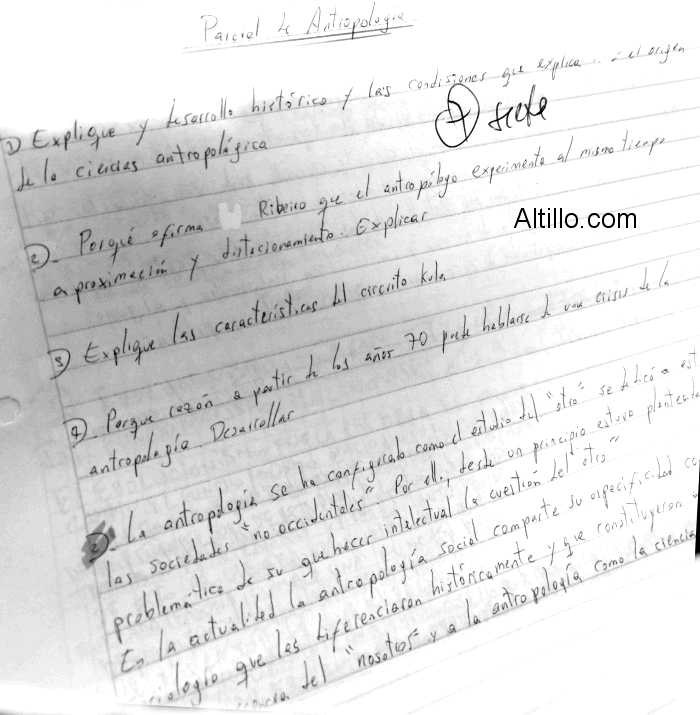 Parcial de Antropología
1) Explique y desarrollo histórico y las condisiones que explica el origen
de la ciencias antropológica
7 siete
2)- Porqué afirma Ribeiro que el antropólogo experimenta al mismo tiempo
aproximación y distacionamiento. Explicar
Altillo.com
3) Explique las características del circuito kula
4)- Porque razón a partir de los años 70 puede hablarse de una crisis de la
antropología. Desarrollar
2)- La antropología se ha configurado como el estudio del "otro" se dedicó a est
las sociedades "no occidentales". Por ello, desde un principio estuvo
problemático de su quehacer intelectual la cuestión del "otro"
En la actualidad la antropología social comparte su especificidad co
que las diferenciaron históricamente y que constituyeron
del "nosotros" y a la antropología como la ciencia